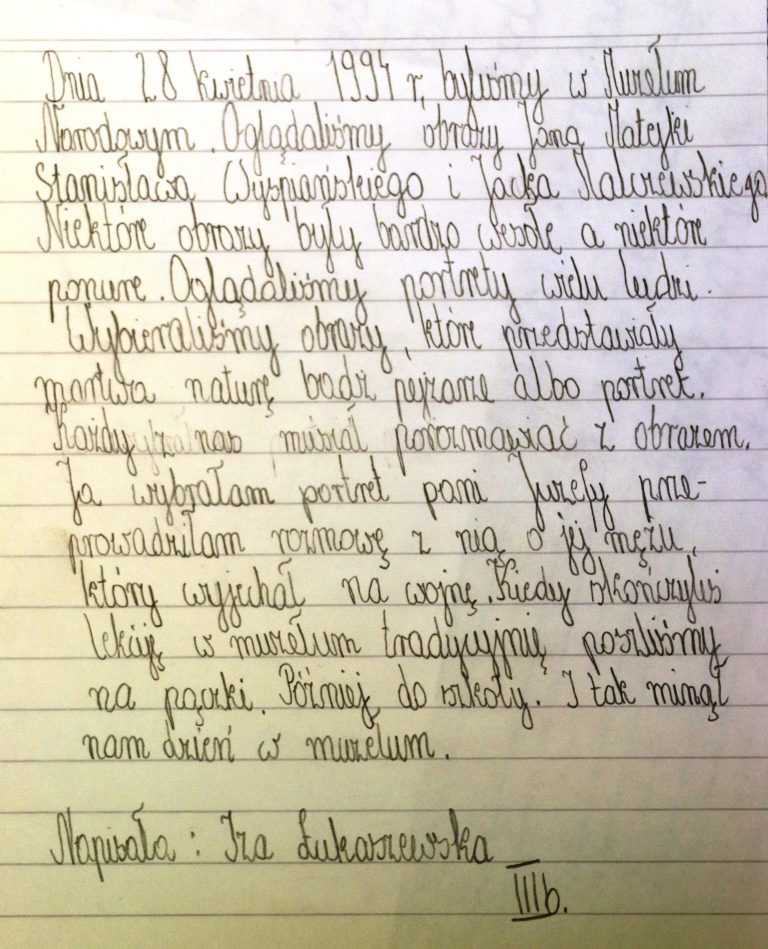 Dnia 28 kwietnia 1994 r, byliśmy w Muzeum
Narodowym. Oglądaliśmy obrazy Jana Matejki
Stanisława Wyspiańskiego i Jacka Malczewskiego
Niektóre obrazy były bardzo wesołe a niektóre
ponure. Oglądaliśmy portrety wielu ludzi.
Wybieraliśmy obrazy, które przedstawiały
martwą naturę bądź pejzarze albo portret.
Każdy z nas musiał porozmawiać z obrazem.
Ja wybrałam portret pani Juzefy prze-
prowadziłam rozmowę z nią o jej mężu,
który wyjechał na wojnę. Kiedy skończyliś
lekcję w muzeum tradycyjnię poszliśmy
na pączki. Później do szkoły. I tak minął
nam dzień w muzeum.
Napisała: Iza Łukaszewska
IIIb.